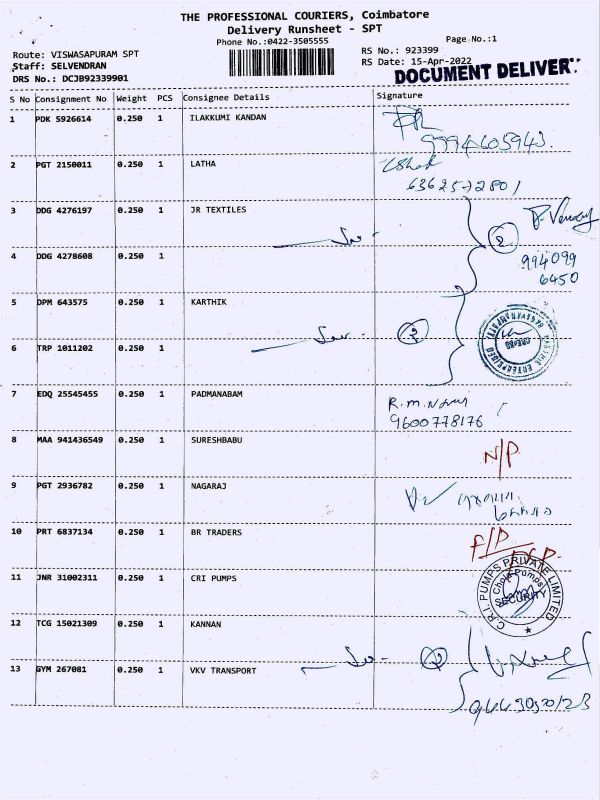 THE PROFESSIONAL COURIERS, Coimbatore
Delivery Runsheet - SPT
Phone No.:0422-3505555
Page No.:1
Route: VISWASAPURAM SPT
Staff: SELVENDRAN
DRS No.: DCJB92339901
RS No.: 923399
RS Date: 15-Apr-2022
DOCUMENT DELIVER
S No Consignment No Weight PCS Consignee Details Signature
1 PDK 5926614 0.250 1 ILAKKUMI KANDAN
9994605943.
2 PGT 2150011 0.250 1 LATHA
6362572801
3 DDG 4276197 0.250 1 JR TEXTILES
2
4 DDG 4278608 0.250 1
994099
6450
5 DPM 643575 0.250 1 KARTHIK
2
6 TRP 1011202 0.250 1
7 EDQ 25545455 0.250 1 PADMANABAM
R.M.
9600778176
8 MAA 941436549 0.250 1 SURESHBABU
N/P
9 PGT 2936782 0.250 1 NAGARAJ
10 PRT 6837134 0.250 1 BR TRADERS
F/P
11 JNR 31002311 0.250 1 CRI PUMPS
C.R.I. PUMPS PRIVATE LIMITED
SECURITY
12 TCG 15021309 0.250 1 KANNAN
2
13 GYM 267081 0.250 1 VKV TRANSPORT